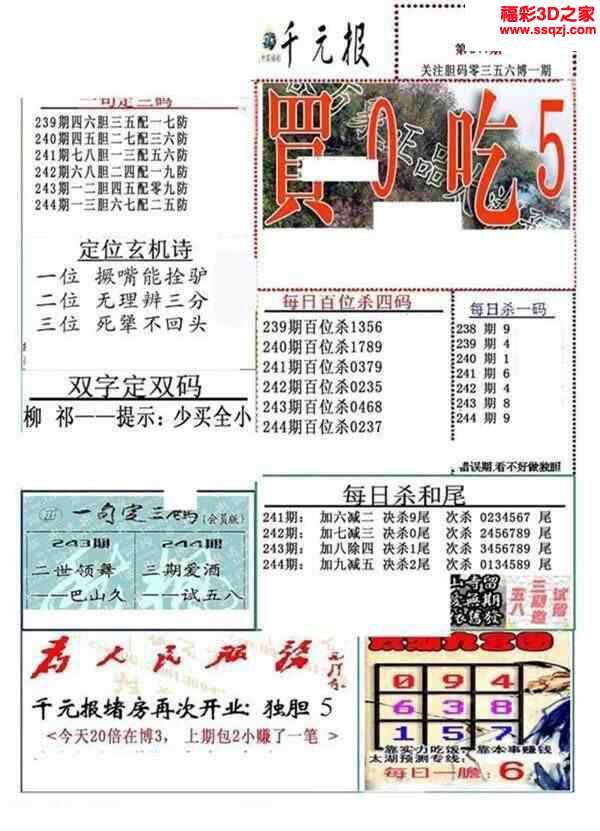 福彩3D之家
www.ssqzj.com
千元报
关注胆码零三五六博一期
一句定三码
239期四六胆三五配一七防
240期四五胆二七配三六防
241期七八胆一三配五六防
242期六八胆二四配一九防
243期一二胆四五配零九防
244期一三胆六七配二五防
買0吃5
定位玄机诗
一位 撅嘴能拴驴
二位 无理辨三分
三位 死犟不回头
每日百位杀四码
239期百位杀1356
240期百位杀1789
241期百位杀0379
242期百位杀0235
243期百位杀0468
244期百位杀0237
每日杀一码
238 期 9
239 期 4
240 期 1
241 期 6
242 期 4
243 期 8
244 期 9
错误期,看不好做独胆
双字定双码
柳 祁——提示:少买全小
一句定三码(会员版)
243期
二世领舞
——巴山久
244期
三期爱酒
——试五八
每日杀和尾
241期: 加六减二 决杀9尾 次杀 0234567 尾
242期: 加七减三 决杀0尾 次杀 2456789 尾
243期: 加八除四 决杀1尾 次杀 3456789 尾
244期: 加九减五 决杀2尾 次杀 0134589 尾
为人民服务
千元报堵房再次开业: 独胆 5
<今天20倍在博3, 上期包2小赚了一笔 >
太湖九宫图
0 9 4
6 3 8
1 5 7
靠实力吃饭,靠本事赚钱
太湖预测专线:
每日一胆: 6